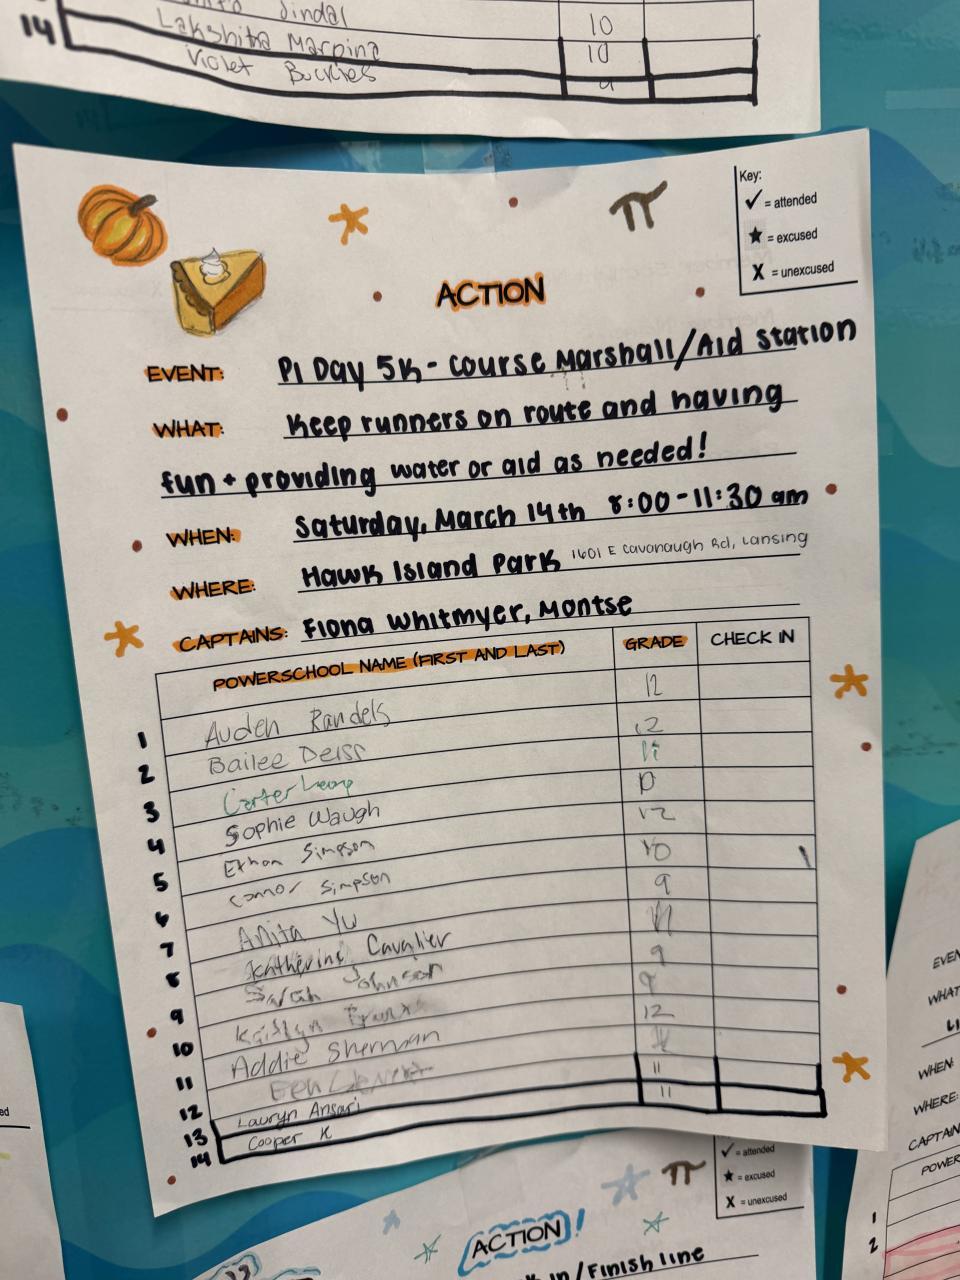 Jindal 10
14 Lakshitha Marpina 10
Violet Buckles 9
Key:
✓ = attended
★ = excused
X = unexcused
π
ACTION
EVENT: Pi Day 5K - Course Marshall/Aid Station
WHAT: Keep runners on route and having
fun + providing water or aid as needed!
WHEN: Saturday, March 14th 8:00-11:30 am
WHERE: Hawk Island Park 1601 E Cavanaugh Rd, Lansing
CAPTAINS: Fiona Whitmyer, Montse
POWERSCHOOL NAME (FIRST AND LAST) GRADE CHECK IN
1 Auden Randels 12
2 Bailee Deiss 12
3 Carter Leong 11
4 Sophie Waugh
5 Ethan Simpson 12
6 Connor Simpson 10
7 Anita Yu 9
8 Katherine Cavalier 11
9 Sarah Johnson 9
10 Kaitlyn 9
11 Addie Sherman 12
12 Ben
13 Lauryn Ansari 11
14 Cooper K 11
✓ = attended
★ = excused
X = unexcused
π
ACTION!
in/Finish line
ed
EVEN
WHAT
WHEN:
WHERE:
CAPTAIN
POWER
1
2